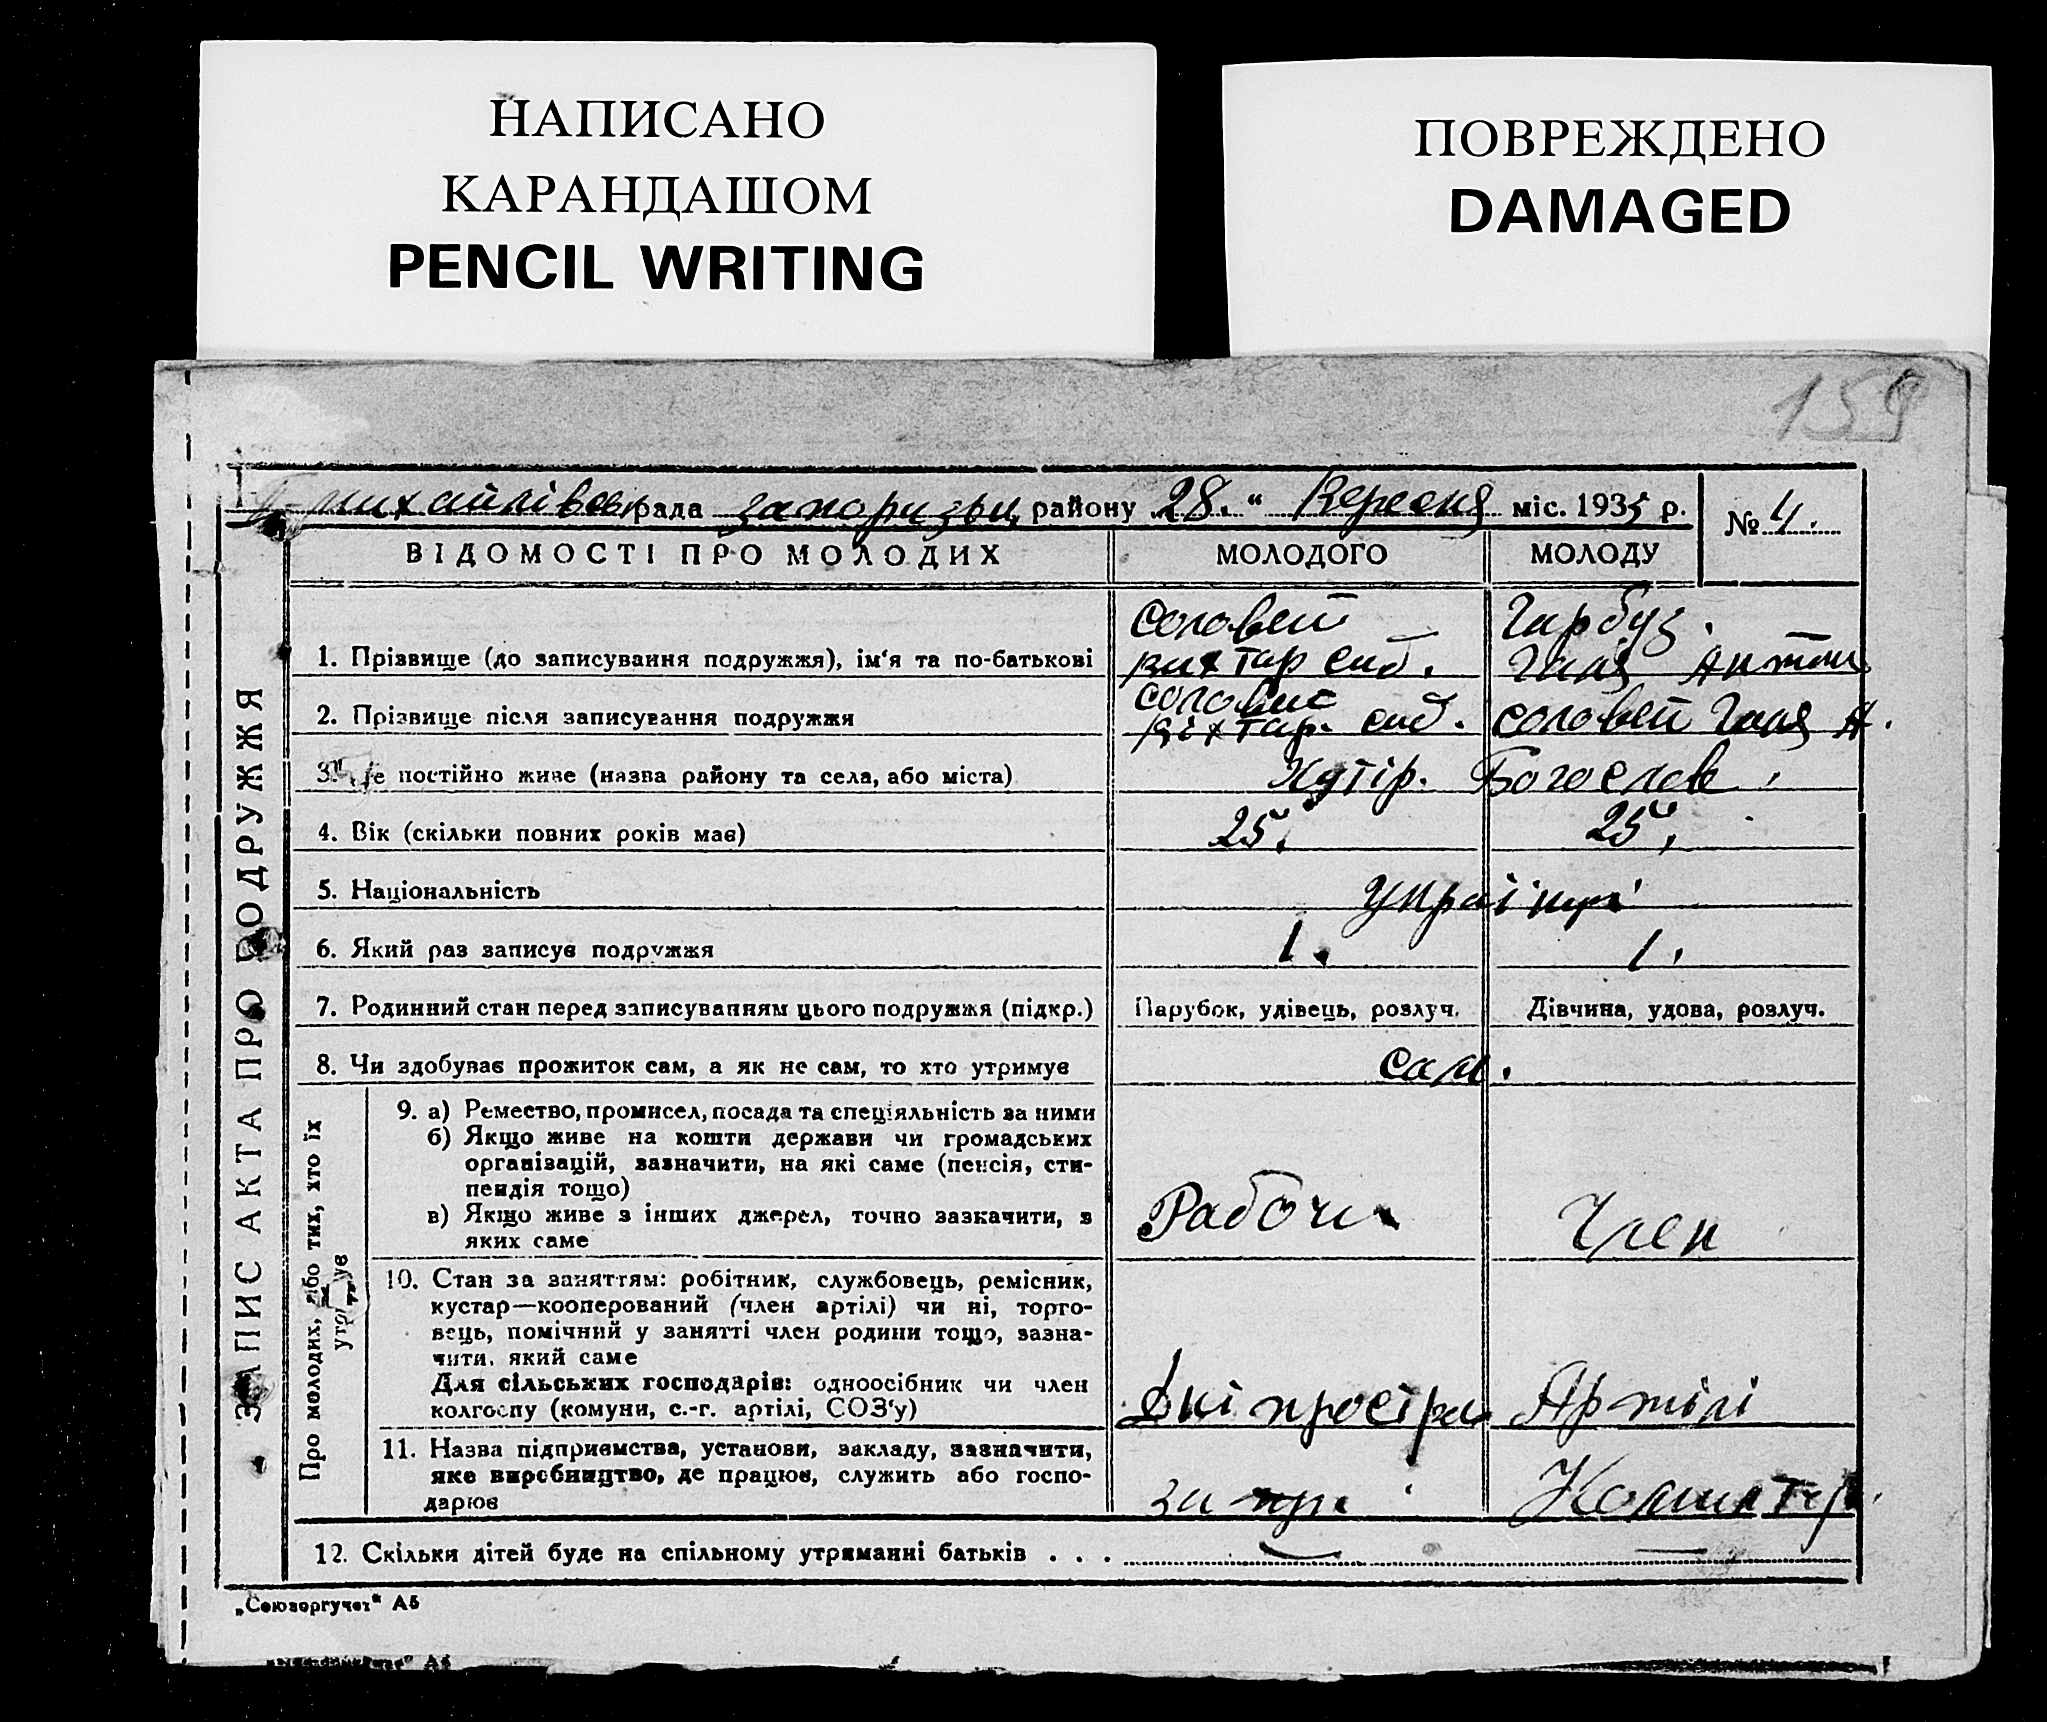 НАПИСАНО
КАРАНДАШОМ
PENCIL WRITING
ПОВРЕЖДЕНО
DAMAGED
159
михайлівськ рада запоризьк району 28. " Вересня міс. 1935 р.
№ 4.
ВІДОМОСТІ ПРО МОЛОДИХ МОЛОДОГО МОЛОДУ
ЗАПИС АКТА ПРО ПОДРУЖЖЯ
Соловей Гарбуз.
1. Прізвище (до записування подружжя), ім'я та по-батькові вихтар сид. Галя Антон
2. Прізвище після записування подружжя Соловей віхтар. сид. соловей Галя А.
3. Де постійно живе (назва району та села, або міста) Хутір. Богослов
4. Вік (скільки повних років має) 25. 25.
5. Національність украінці
6. Який раз записує подружжя 1. 1.
7. Родинний стан перед записуванням цього подружжя (підкр.) Парубок, удівець, розлуч. Дівчина, удова, розлуч.
8. Чи здобуває прожиток сам, а як не сам, то хто утримує сам.
Про молодих, або тих, хто їх утримує
9. а) Ремество, промисел, посада та спеціяльність за ними
б) Якщо живе на кошти держави чи громадських
організацій, зазначити, на які саме (пенсія, сти-
пендія тощо)
в) Якщо живе з інших джерел, точно зазначити, з
яких саме
Рабочи Член
10. Стан за заняттям: робітник, службовець, ремісник,
кустар—кооперований (член артілі) чи ні, торго-
вець, помічний у занятті член родини тощо, зазна-
чити, який саме
Для сільських господарів: одноосібник чи член
колгоспу (комуни, с.-г. артілі, СОЗ'у)
Артілі
11. Назва підприємства, установи, закладу, зазначити,
яке виробництво, де працює, служить або госпо-
дарює
Комінтер
12. Скільки дітей буде на спільному утриманні батьків . . . — —
„Союзоргучет" А5